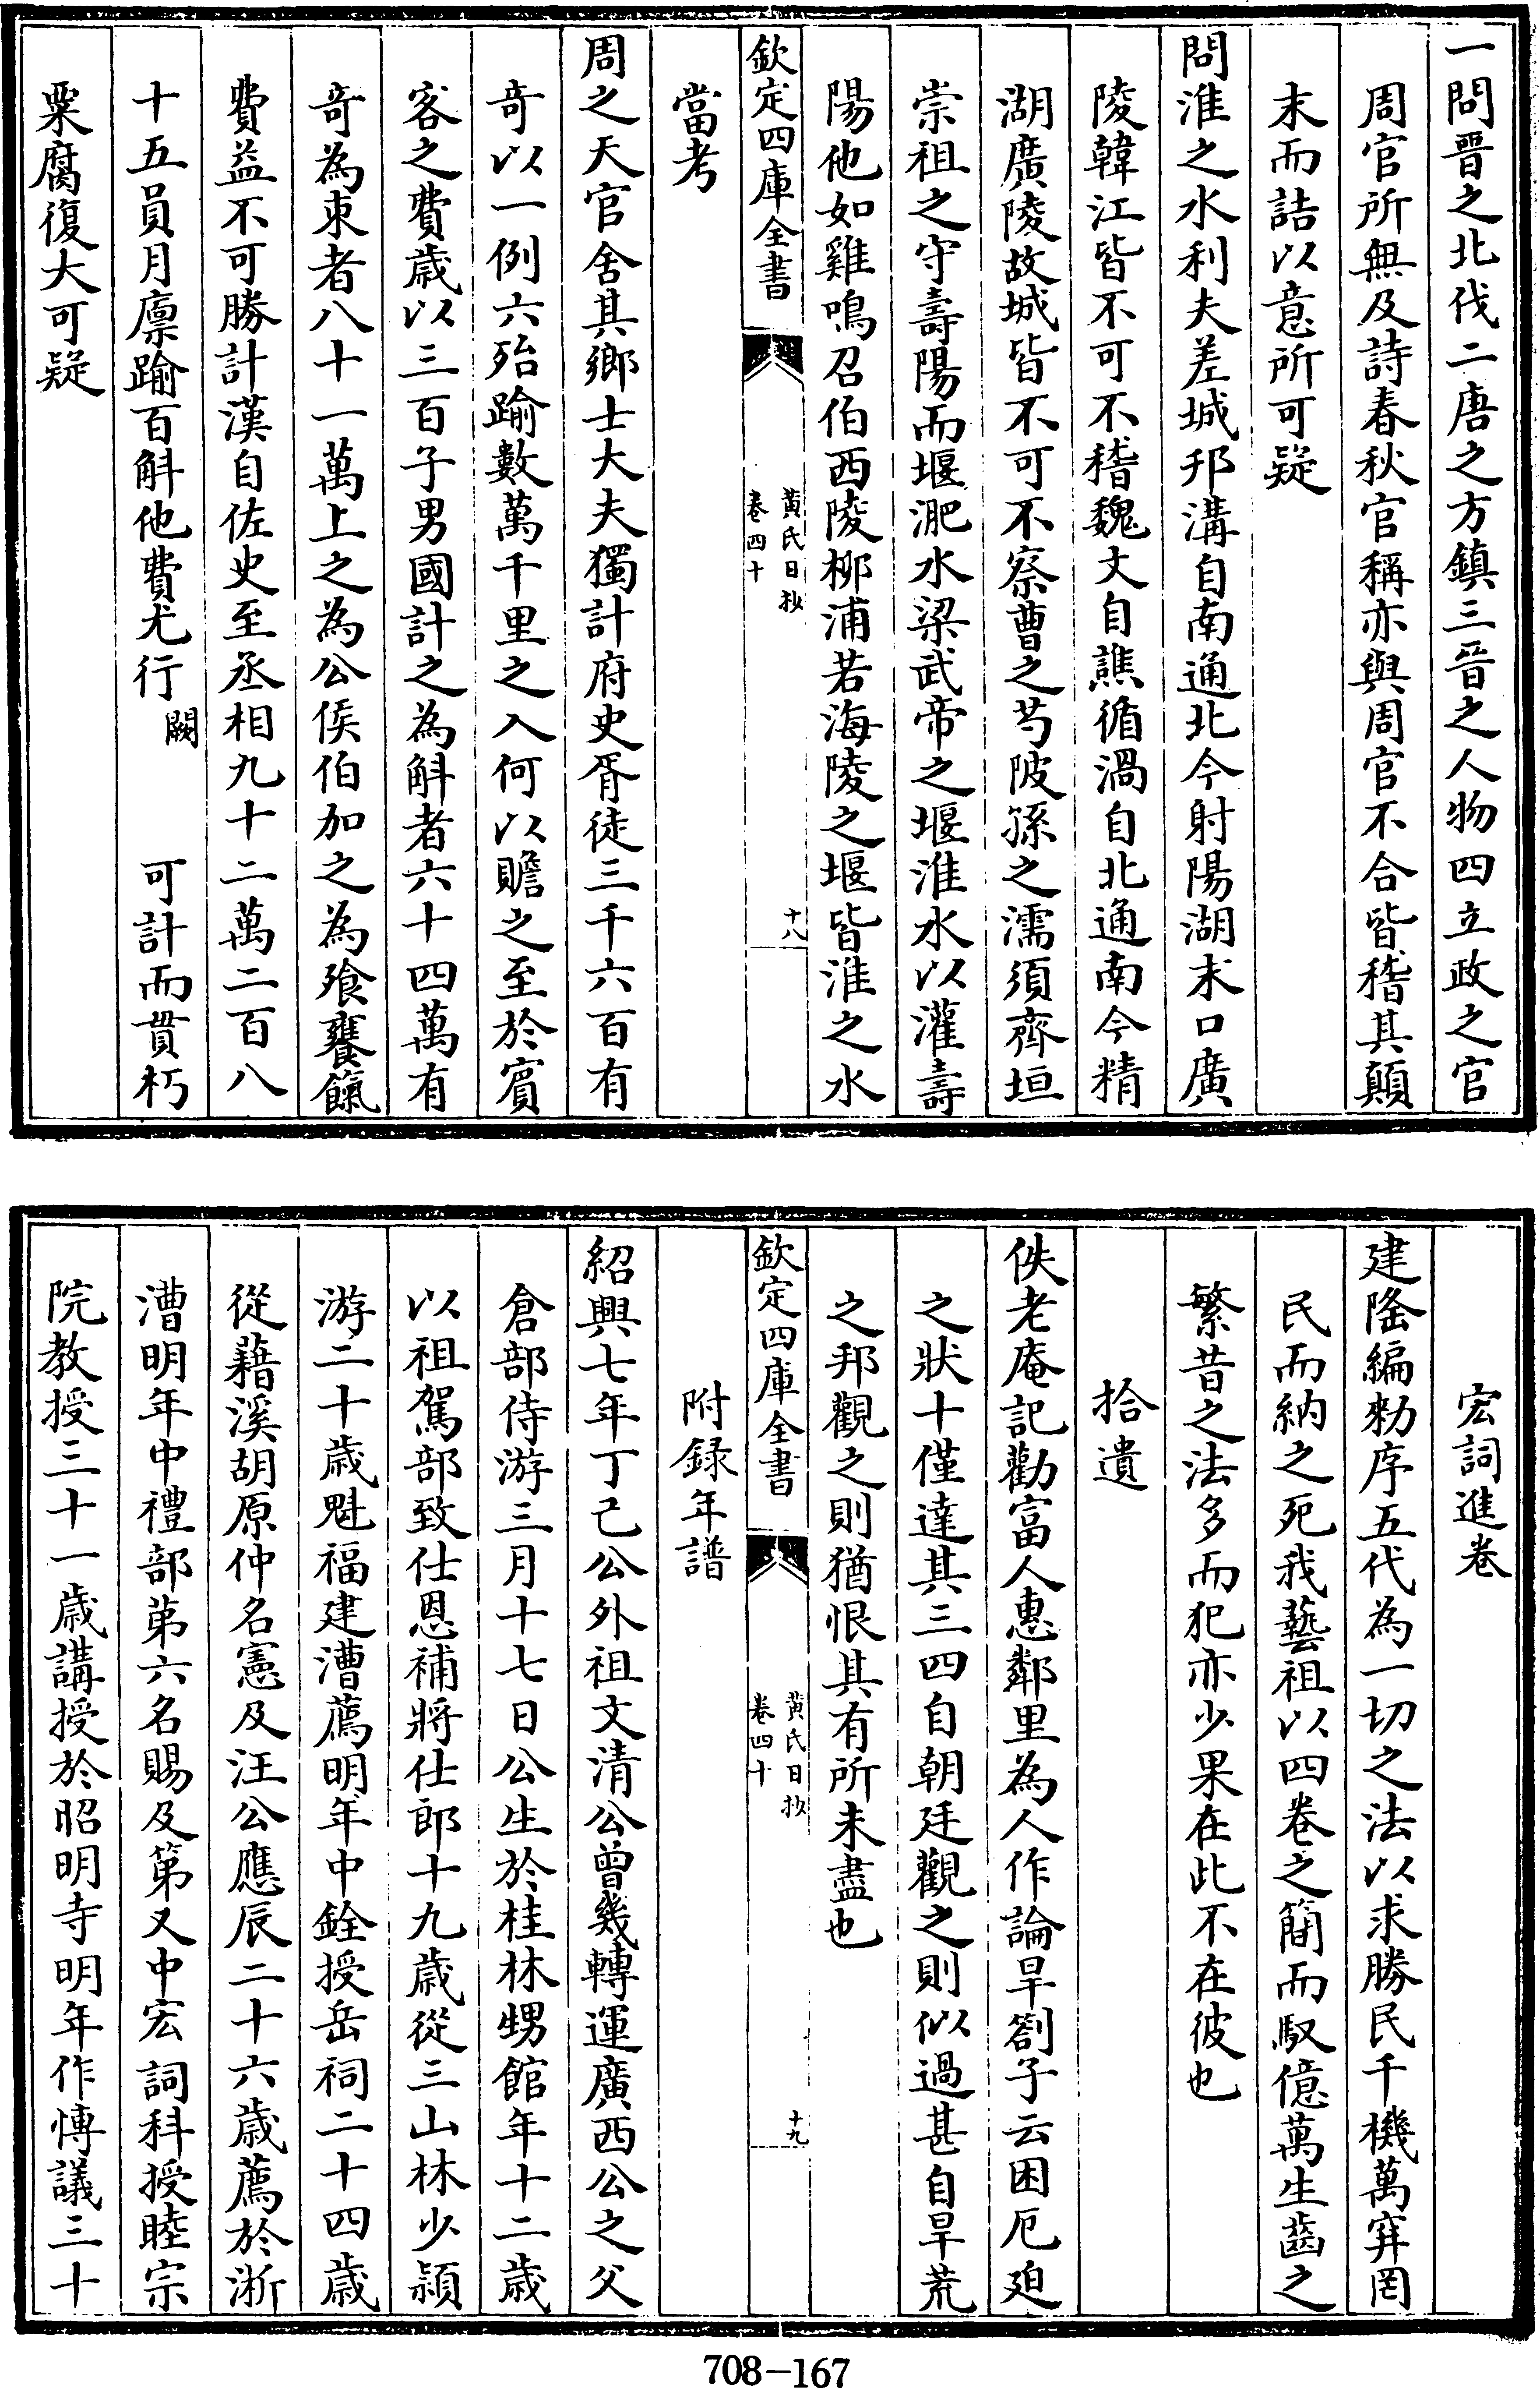 一問晉之北伐二唐之方鎮三晉之人物四立政之官
周官所無及詩春秋官稱亦與周官不合皆稽其顛
末而詰以意所可疑
問淮之水利夫差城邗溝自南通北今射陽湖末口廣
陵韓江皆不可不稽魏文自譙循渦自北通南今精
湖廣陵故城皆不可不察曹之芍陂孫之濡須齊垣
崇祖之守壽陽而堰淝水梁武帝之堰淮水以灌壽
陽他如雞鳴召伯西陵柳浦若海陵之堰皆淮之水
欽定四庫全書
黄氏日抄
卷四十
十八
當考
周之天官舍其鄉士大夫獨計府史胥徒三千六百有
奇以一例六殆踰數萬千里之入何以贍之至於賓
客之費歲以三百子男國計之為斛者六十四萬有
奇為朿者八十一萬上之為公侯伯加之為飱饔餼
費益不可勝計漢自佐史至丞相九十二萬二百八
十五員月廪踰百斛他費尤行闕可計而貫朽
粟腐復大可疑
宏詞進卷
建隆編勑序五代為一切之法以求勝民千機萬穽罔
民而納之死我藝祖以四卷之簡而馭億萬生齒之
繁昔之法多而犯亦少果在此不在彼也
拾遺
佚老庵記勸富人惠鄰里為人作論旱劄子云困厄廹
之狀十僅達其三四自朝廷觀之則似過甚自旱荒
之邦觀之則猶恨其有所未盡也
欽定四庫全書
黄氏日抄
卷四十
十九
附録年譜
紹興七年丁已公外祖文清公曾幾轉運廣西公之父
倉部侍游三月十七日公生於桂林甥館年十二歲
以祖駕部致仕恩補將仕郎十九歲從三山林少穎
游二十歲魁福建漕薦明年中銓授岳祠二十四歲
從藉溪胡原仲名憲及汪公應辰二十六歲薦於浙
漕明年中禮部第六名賜及第又中宏詞科授睦宗
院教授三十一歲講授於昭明寺明年作愽議三十
708-167